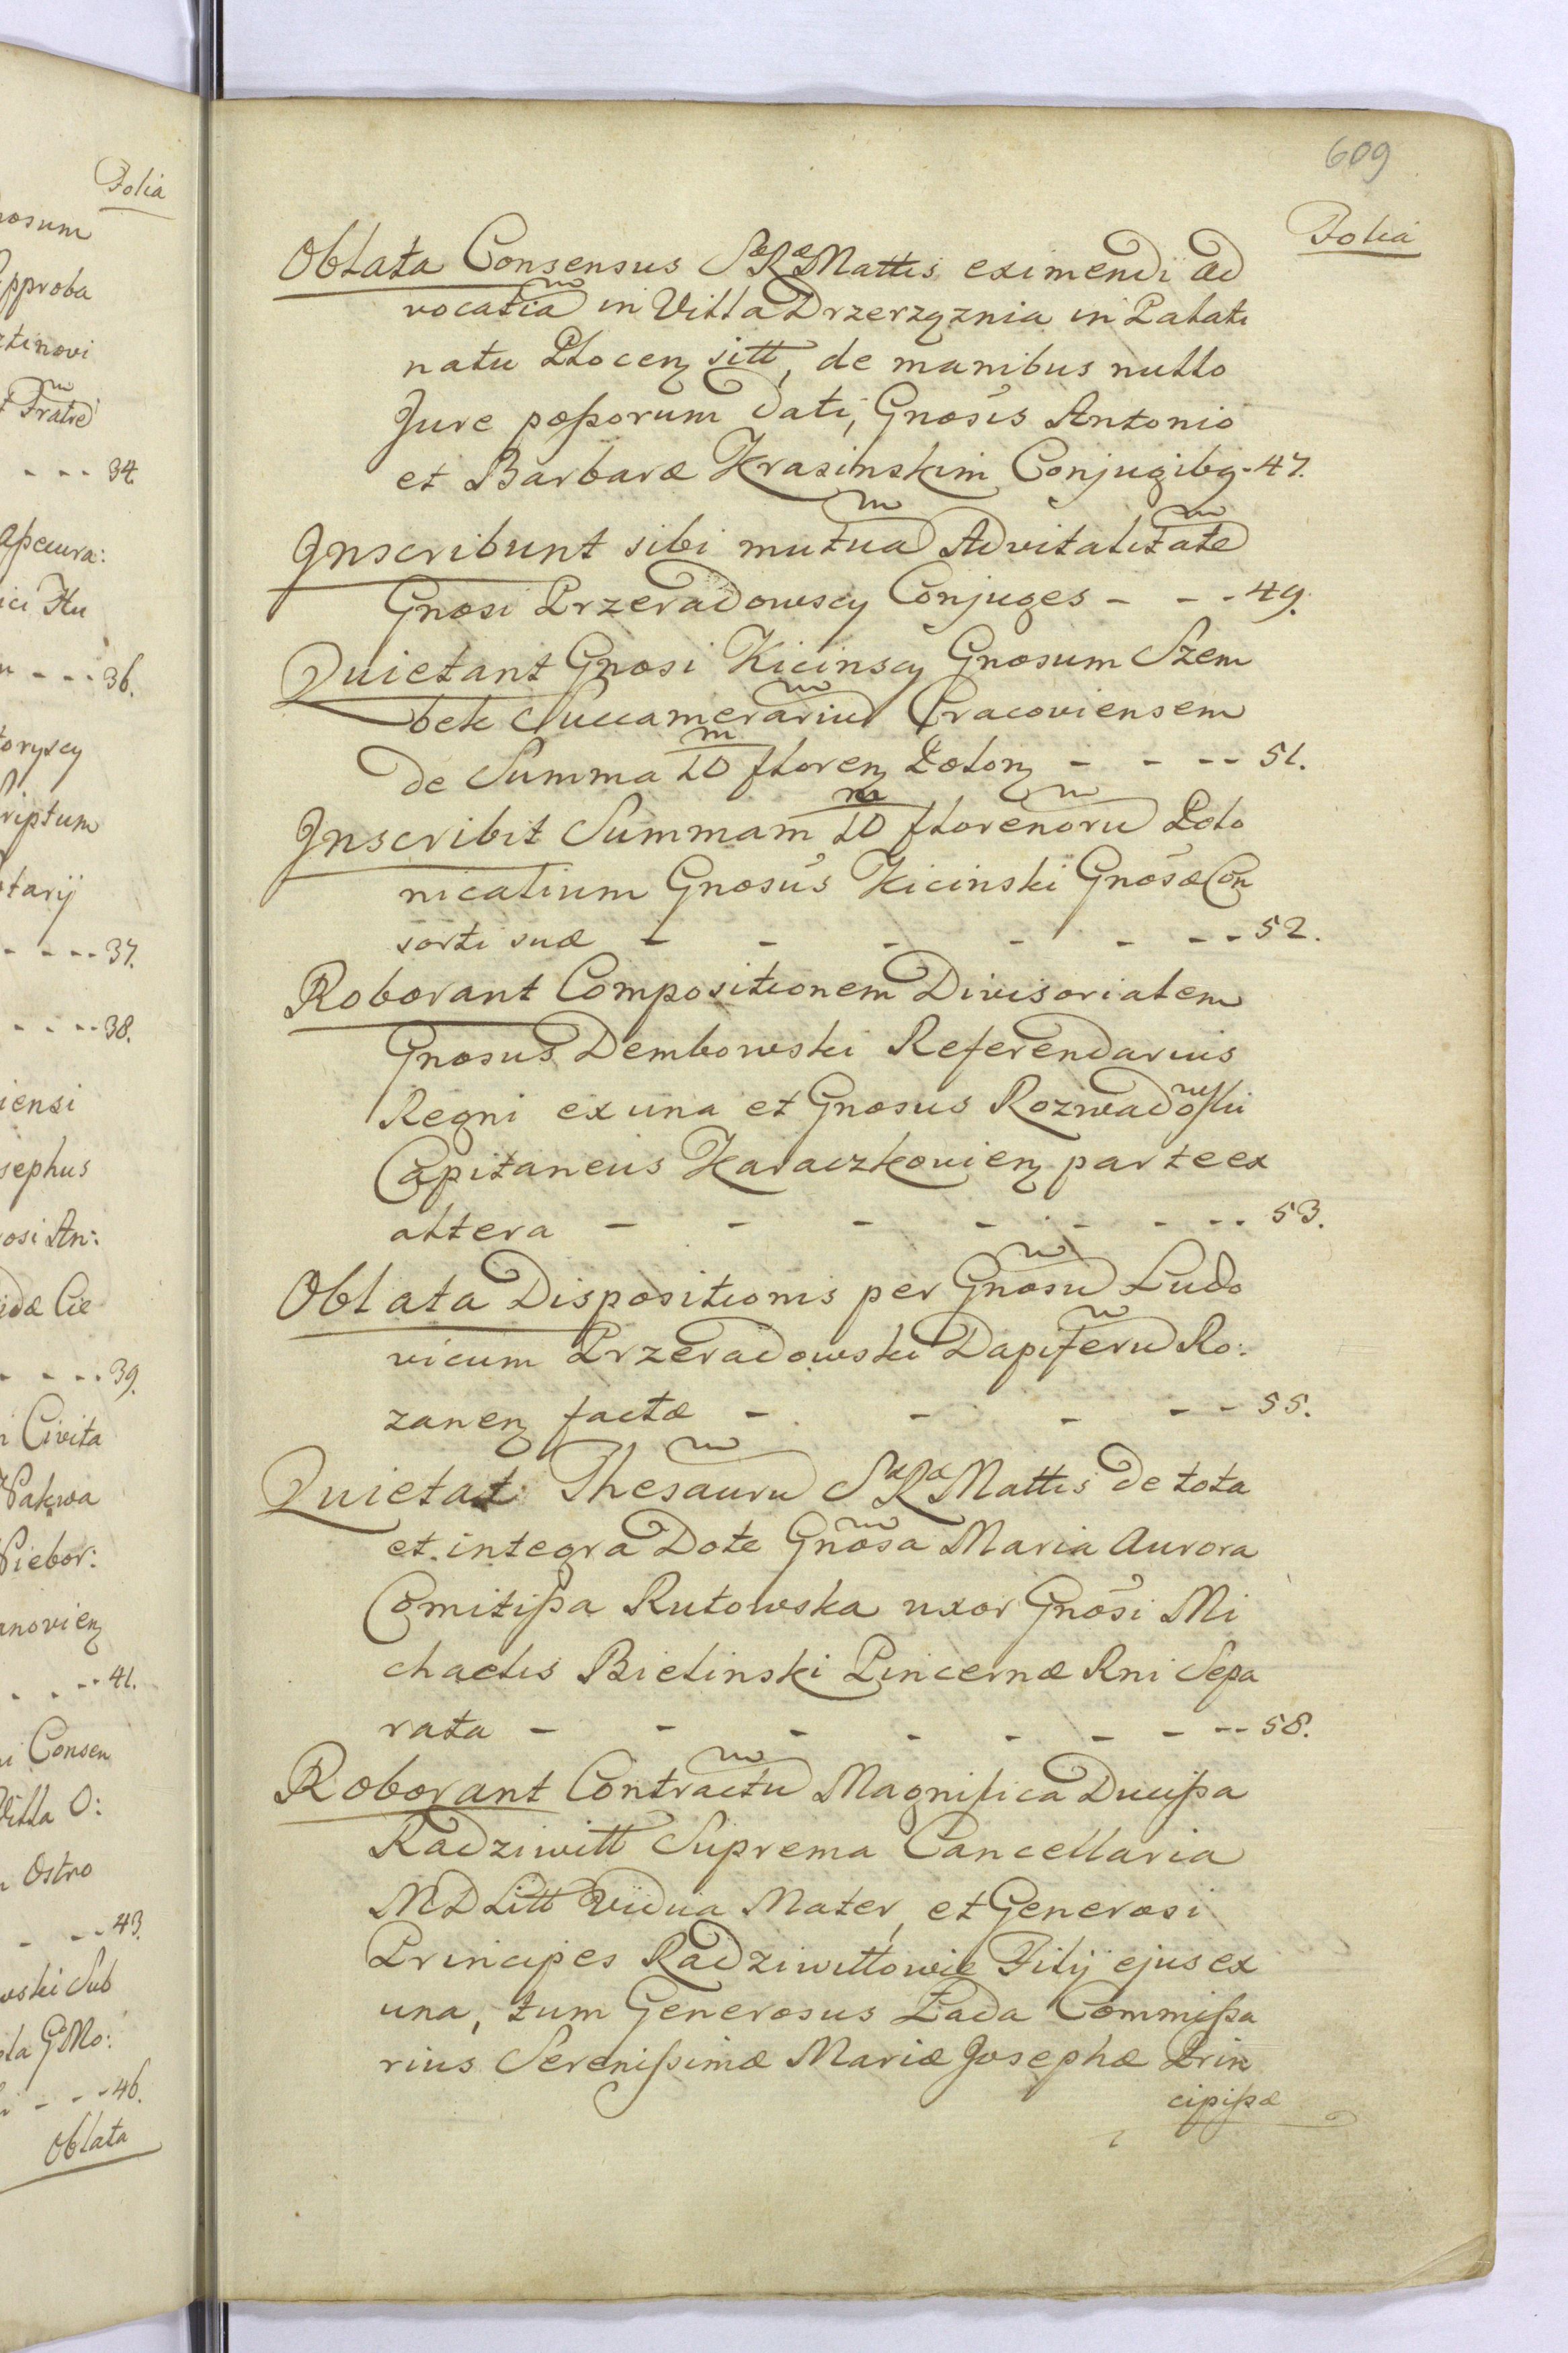 Folia
osum
pproba
ztinovi
Fratre
- - - 34.
apeura:
ici Hu
- - - 36.
toryscy
riptum
tarij
- - - - 37.
- - - - 38.
iensi
sephus
osi An:
idæ Cie
- - - - 39.
Civita
Pakwa
Piebor:
anovien
- - - 41.
i Consen
Villa O:
Ostro
- - - 43.
wski Sub
ta GMo:
- - - 46.
Oblata
609
Folia
Oblata Consensus SæRæMattis eximendi ad
vocatia in Villa Drzerząznia in Palati
natu Plocen sitt, de manibus nullo
Jure poßorum dati, Gnosis Antonio
et Barbaræ Krasinskim Conjugibq - 47.
Inscribunt sibi mutua Advitalitate
Gnosi Przeradowscy Conjuges - - - 49.
Quietant Gnosi Kicinscy Gnosum Szem
bek Succamerariu Cracoviensem
de Summa 10 floren Polon - - - - 51.
Inscribit Summam 10 florenoru Polo
nicalium Gnosus Kicinski Gnosæ Con
sorti suæ - - - - - - - 52.
Roborant Compositionem Divisorialem
Gnosus Dembowski Referendarius
Regni ex una et Gnosus Rozwadowski
Capitaneus Karaczkovien parte ex
altera - - - - - - - - 53.
Oblata Dispositionis per Gnosu Ludo
vicum Przeradowski Dapiferu Ro:
zanen factæ - - - - - 55.
Quietat Thesauru SæRæMattis de tota
et integra Dote Gnosa Maria Aurora
Comitißa Rutowska uxor Gnosi Mi
chaelis Bielinski Pincernæ Rni Sepa
rata - - - - - - - - - 58.
Roborant Contractu Magnifica Ducißa
Radziwill Suprema Cancellaria
MDLitt Vidua Mater, et Generosi
Principes Radziwiłłowie Filij ejus ex
una, tum Generosus Łada Commißa
rius Serenißimæ Mariæ Josephæ Prin
cipißæ